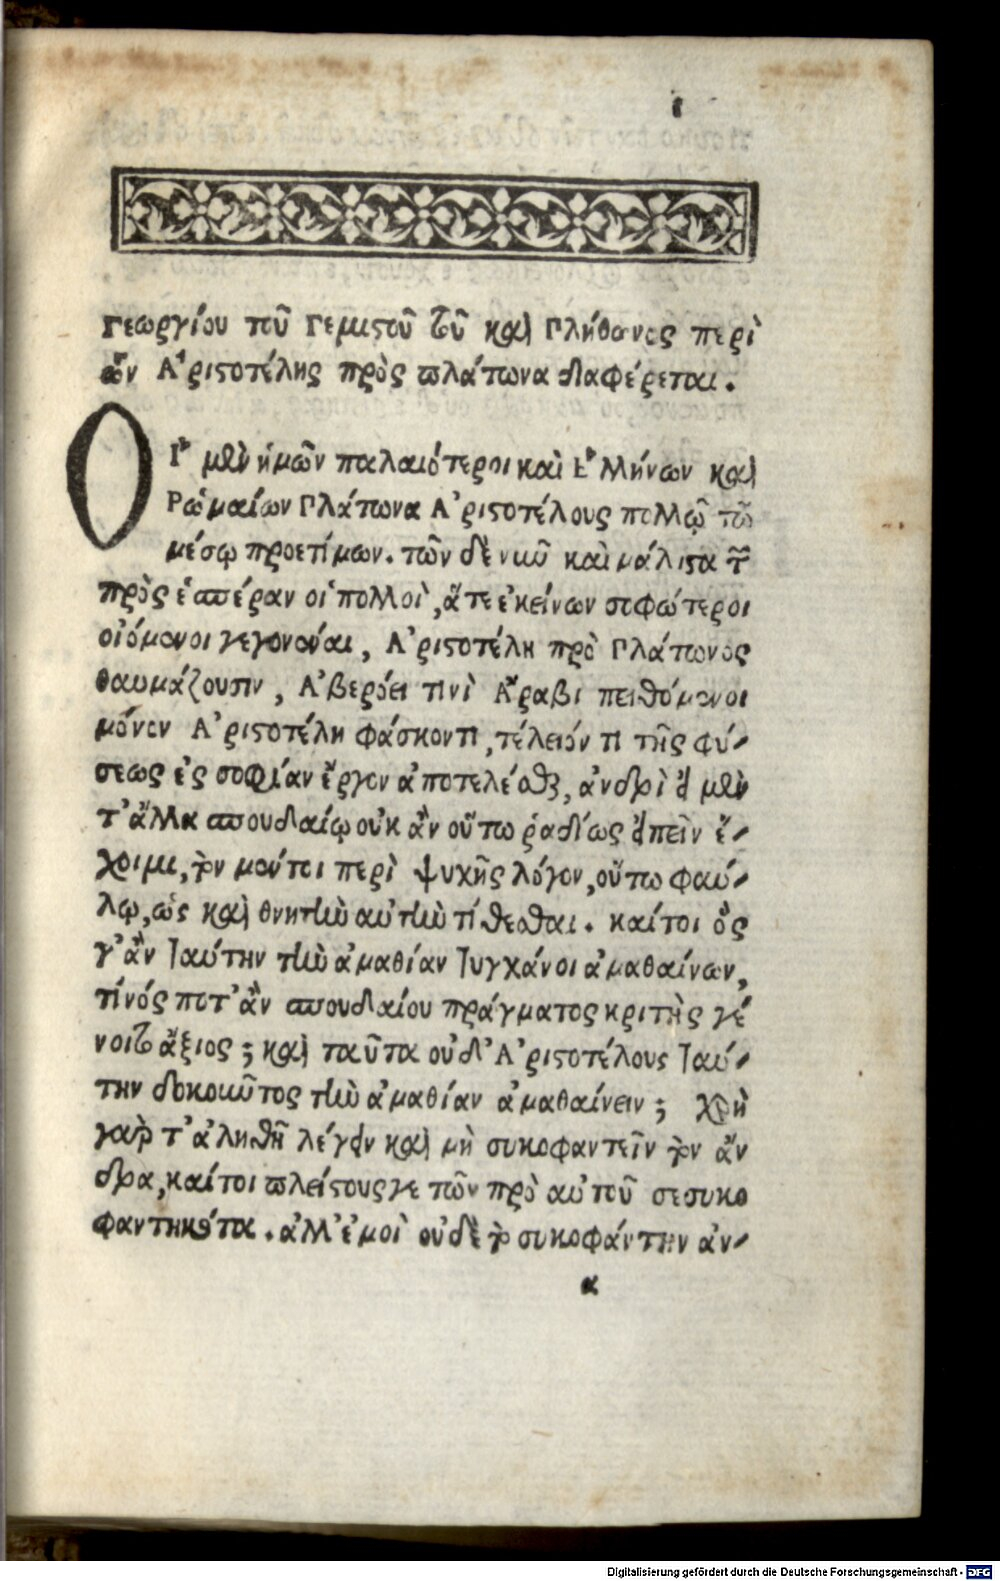 1
Γεωργίου τοῦ Γεμιστοῦ τοῦ καὶ Πλήθωνος περὶ
ὧν Ἀριστοτέλης πρὸς πλάτωνα διαφέρεται.
ΟἹ μὲν ἡμῶν παλαιότεροι καὶ Ἑλλήνων καὶ
Ῥωμαίων Πλάτωνα Ἀριστοτέλους πολλῷ τῷ
μέσῳ προετίμων. τῶν δὲ νῦν καὶ μάλιστα τῶν
πρὸς ἑσπέραν οἱ πολλοὶ, ἅτε ἐκείνων σοφώτεροι
οἰόμενοι γεγονέναι, Ἀριστοτέλη πρὸ Πλάτωνος
θαυμάζουσιν, Ἀβερόει τινὶ Ἄραβι πειθόμενοι
μόνον Ἀριστοτέλη φάσκοντι, τέλειόν τι τῆς φύ-
σεως ἐς σοφίαν ἔργον ἀποτελέσθαι, ἀνδρὶ εἰ μὲν
τ' ἄλλα σπουδαίῳ οὐκ ἂν οὕπω ῥαδίως εἰπεῖν ἔ-
χοιμι, τὸν μέντοι περὶ ψυχῆς λόγον, οὕτω φαύ-
λῳ, ὡς καὶ θνητὴν αὐτὴν τίθεσθαι. καίτοι ὃς
γ' ἂν ταύτην τὴν ἀμαθίαν τυγχάνοι ἀμαθαίνων,
τίνός ποτ' ἂν σπουδαίου πράγματος κριτὴς γέ
νοιτο ἄξιος; καὶ ταῦτα οὐδ' Ἀριστοτέλους ταύ-
την δοκοῦντος τὴν ἀμαθίαν ἀμαθαίνειν; χρὴ
γαρ τ' ἀληθῆ λέγειν καὶ μὴ συκοφαντεῖν τὸν ἄν
δρα, καίτοι πλείστους γε τῶν πρὸ αὐτοῦ σεσυκο
φαντηκότα. ἀλλ' ἐμοὶ οὐδὲ τὸν συκοφάντην ἀν-
α
Digitalisierung gefördert durch die Deutsche Forschungsgemeinschaft - DFG